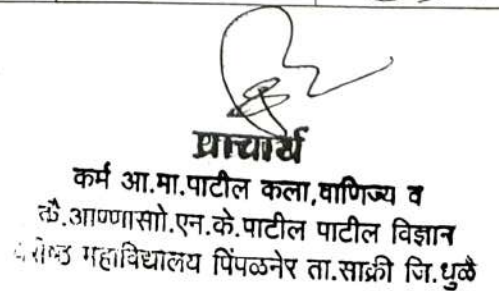 प्राचार्य
कर्म आ.मा.पाटील कला,वाणिज्य व
कै.आण्णासाो.एन.के.पाटील पाटील विज्ञान
वरीष्ठ महाविद्यालय पिंपळनेर ता.साक्री जि.धुळे